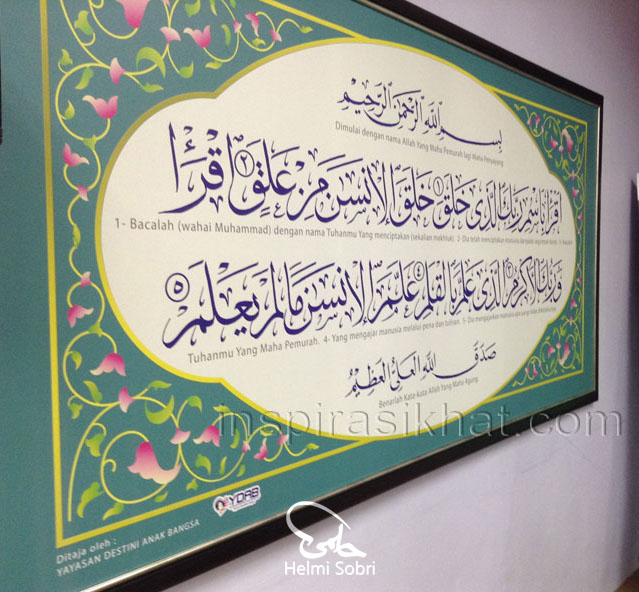 بسم الله الرحمن الرحيم
Dimulai dengan nama Allah Yang Maha Pemurah lagi Maha Penyayang
اقرأ باسم ربك الذي خلق ١ خلق الإنسن من علق ٢ اقرأ
1- Bacalah (wahai Muhammad) dengan nama Tuhanmu Yang menciptakan (sekalian makhluk). 2- Dia telah menciptakan manusia
وربك الأكرم ٣ الذي علم بالقلم ٤ علم الإنسن ما لم يعلم ٥
Tuhanmu Yang Maha Pemurah. 4- Yang mengajar manusia melalui pena dan tulisan. 5- Dia mengajarkan manusia apa yang tidak diketahuinya.
صدق الله العلي العظيم
Benarlah Kata-kata Allah Yang Maha Agung.
inspirasikhat.com
YDAB
Ditaja oleh :
YAYASAN DESTINI ANAK BANGSA
Helmi Sobri